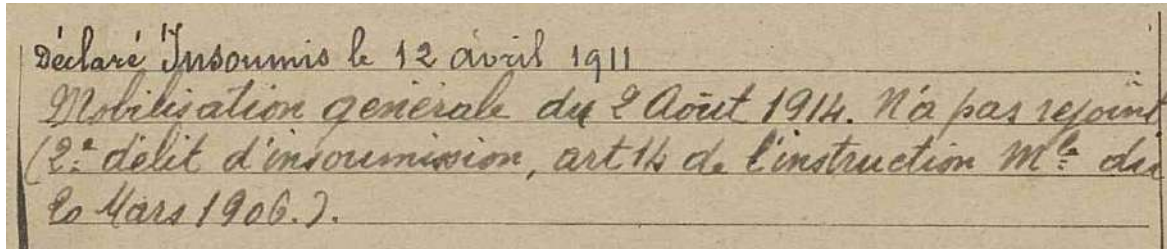 Déclaré Insoumis le 12 avril 1911
Mobilisation générale du 2 Août 1914. N'a pas rejoint
(2e délit d'insoumission, art 14 de l'instruction Mle du
20 Mars 1906.).